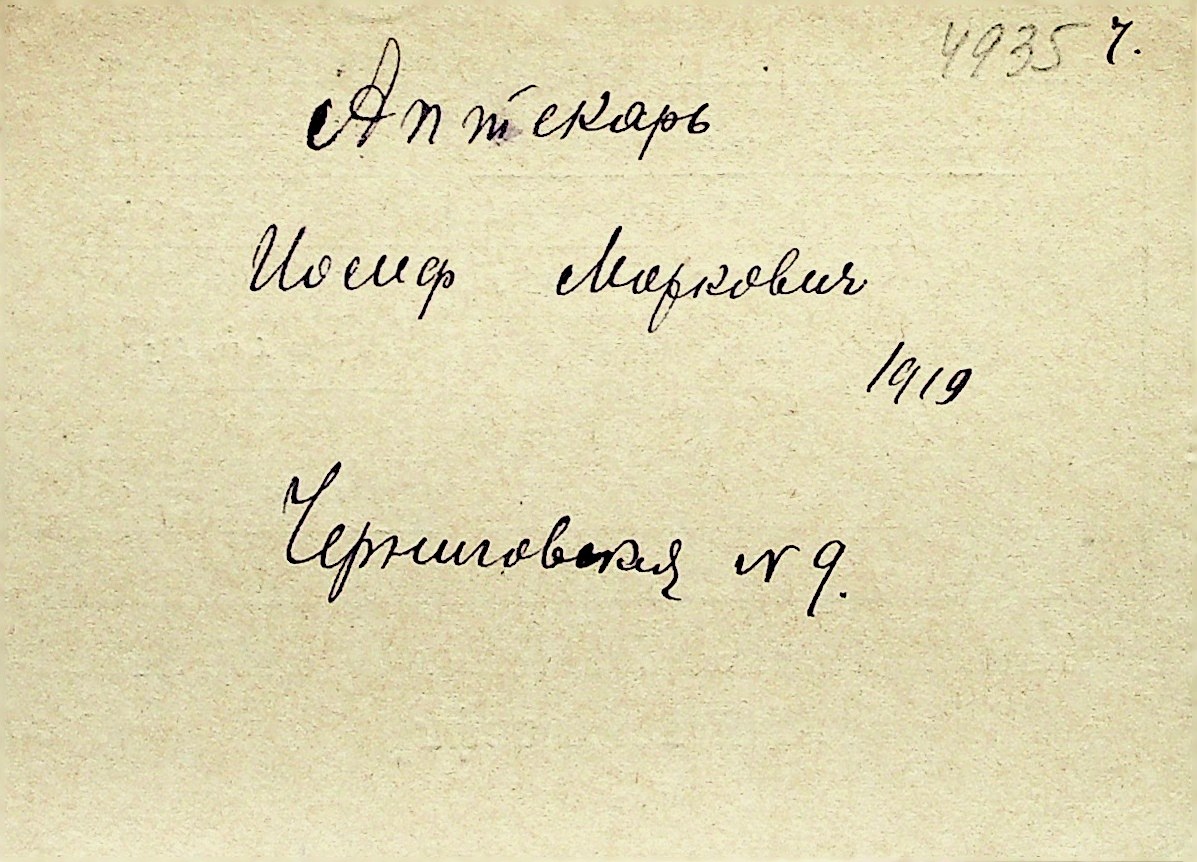 4935 ч.
Аптекарь
Иосиф Маркович
1919
Черниговская N 9.